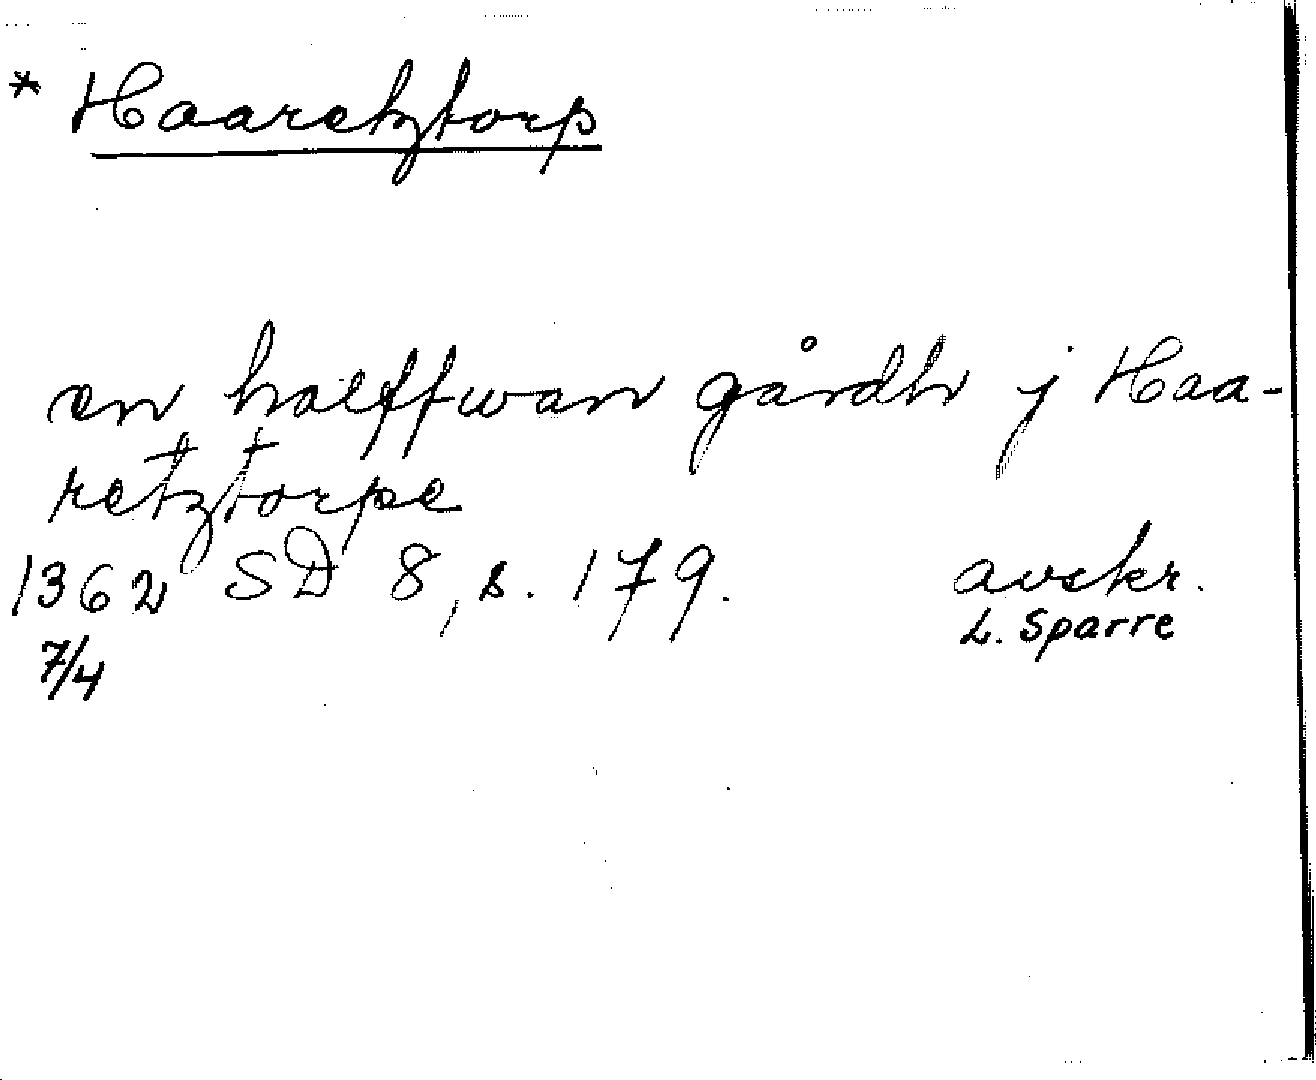 * Haaretztorp
en halffwan gårdh j Haa-
retztorpe
1362 SD 8, s. 179. avskr.
7/4 L. Sparre